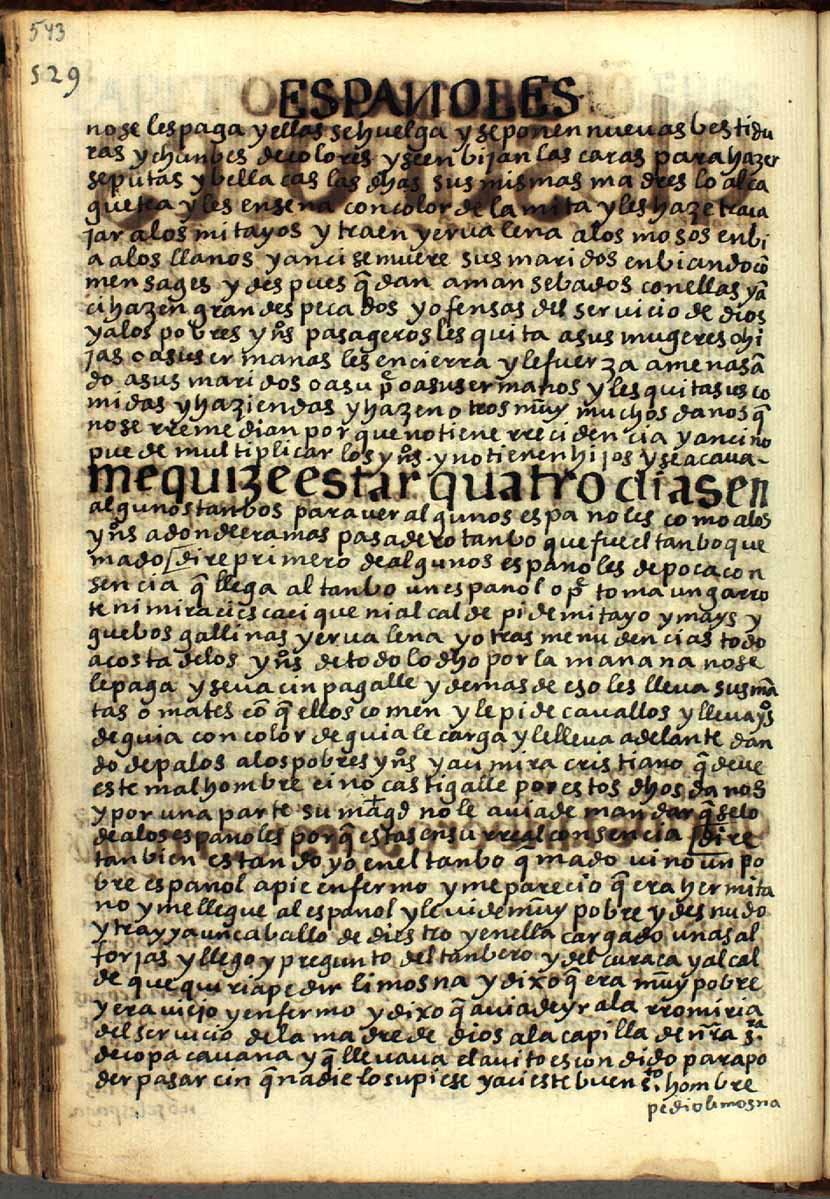 543
529
ESPAÑOLES
no se les paga y ellas se huelga y se ponen nuevas bestidu
ras y chunbes de colores y se enbijan las caras para hazer
se putas y bellacas las dhas sus mismas madres lo alca
guetea y les ensena con color de la mita y les haze traua
jar a los mitayos y traen yerua lena a los mosos enbi
a a los llanos y anci se muere sus maridos enbiando cō
mensages y despues q̃ dan amansebados con ellas yā
ci hazen grandes pecados y ofensas del servicio de dios
y a los pobres yn̄s pasageros les quita a sus mugeres o hi
jas o a sus ermanas les encierra y le fuerza amenasā
do a sus maridos o a su p̃ o a sus ermanos y les quita sus co
midas y haziendas y hazen otros mūy muchos danos q̃
no se rremedian por que no tiene rrecidencia y anci no
puede multiplicar los yn̄s. y no tienen hijos y se acava~
me quize estar quatro dias en
algunos tanbos para ver algunos espanoles como a los
yn̄s a donde eramas pasadero tanbo que fue el tanbo que
mado / dire primero de algunos espanoles de poca con
sencia q̃ llega al tanbo un espanol o p̃ toma un garro
te ni mira ci es cacique ni alcalde pide mitayo y mays y
guebos gallinas yerua lena y otras menudencias todo
a costa de los yn̄s de todo lo dho por la manana no se
le paga y se va cin pagalle y demas de eso les lleva sus mā
tas o mates cō q̃ ellos comen y le pide cavallos y lleva yn̄s
de guia con color de guia le carga y le lleva adelante dan
do de palos a los pobres yn̄s y aci mira cristiano q̃ deve
este mal hombre ci no castigalle por estos dhos danos
y por una parte su mag̃d no le avia de mandar q̃ selo
de a los espanoles porq̃ estas en su rreal consencia / dire
tanbien estando yo en el tanbo q̃mado vino un po
bre espanol a pie enfermo y me parecio q̃ era hermita
no y me llegue al espanol y le vide mūy pobre y desnudo
y trayya un caballo de diestro y en ella cargado unas al
forjas y llego y pregunto del tanbero y del curaca y alcal
de que quiria pedir limosna y dixo q̃ era mūy pobre
y era viejo y enfermo y dixo q̃ avia de yr a la rromiria
del servicio de la madre de dios a la capilla de nr̄a s.ra
de copacavana y q̃ llevava el avito escondido para po
der pasar cin q̃ nadie lo supiese y aci este buen s.to hombre
pedio limosna